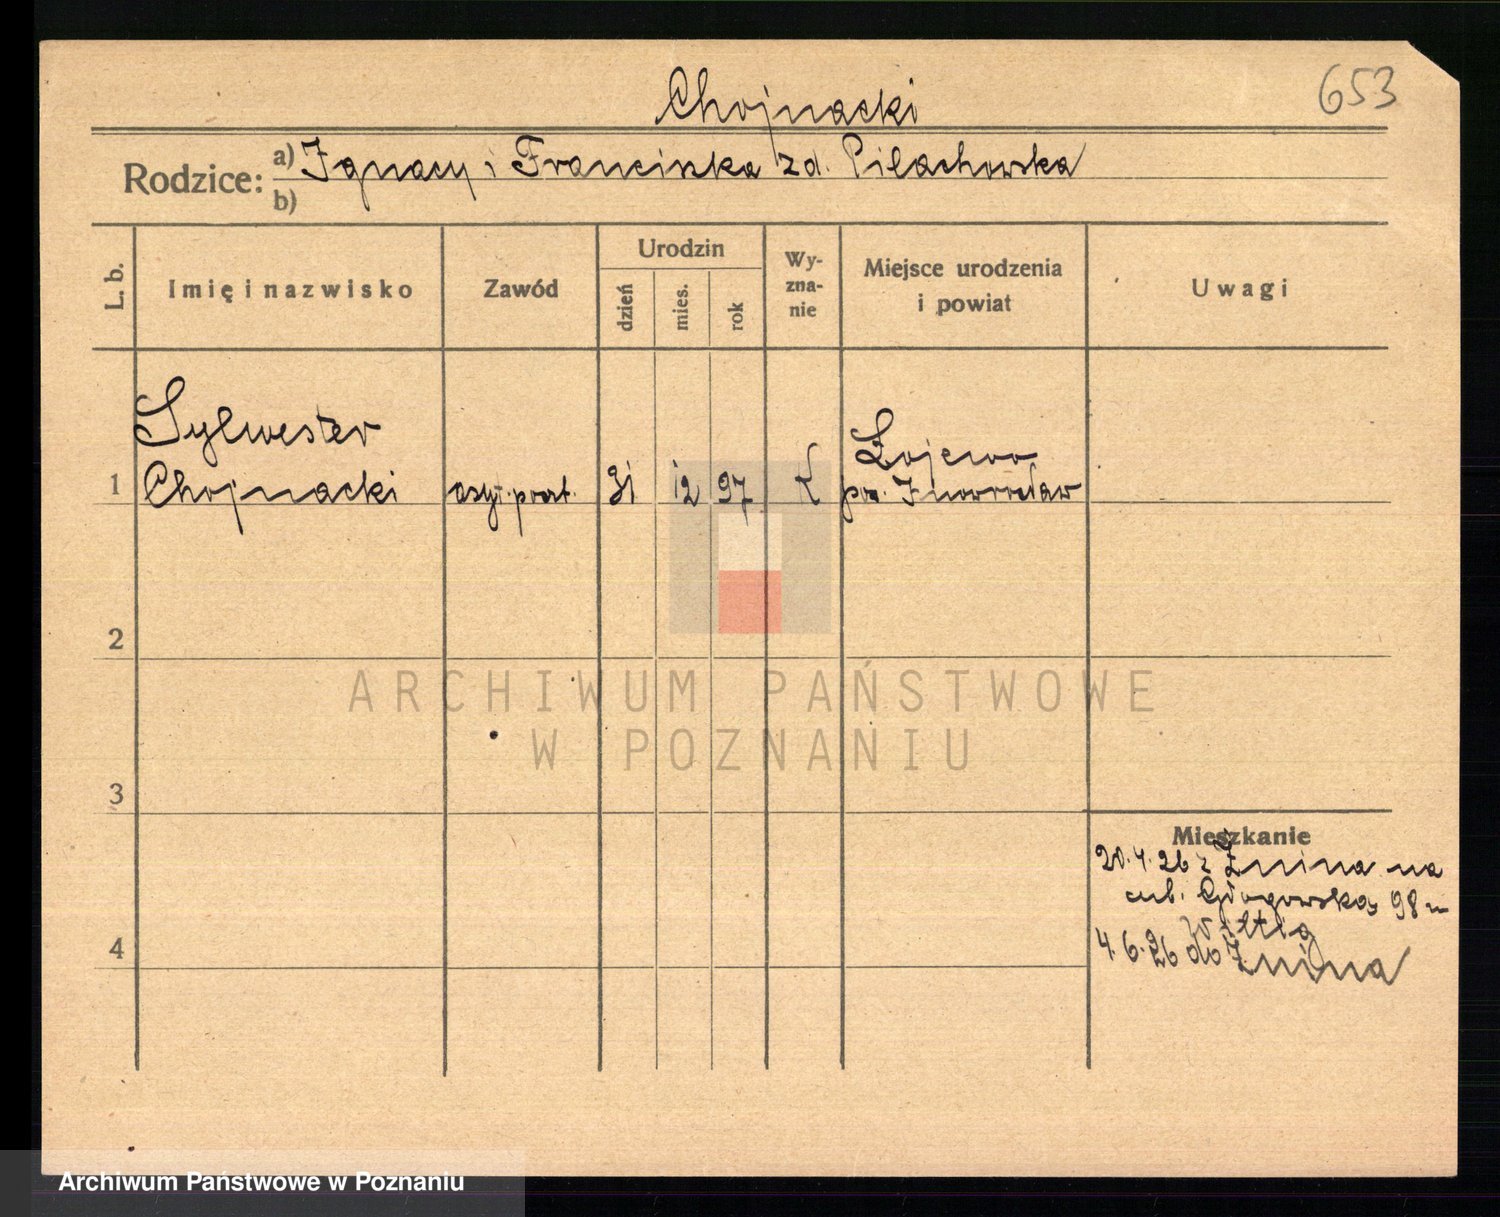 653
Chojnacki
Rodzice: a) Ignacy i Franciszka zd. Pilachowska
b)
L. b. Imię i nazwisko Zawód Urodzin dzień mies. rok Wy-zna-nie Miejsce urodzenia i powiat Uwagi
Sylwester Łojewo
1 Chojnacki asyt. poczt. 31 12 97 K pow. Inowrocław
2
ARCHIWUM PAŃSTWOWE
W POZNANIU
3
Mieszkanie
20.4.26 z Żnina na
sub. Głogowska 98 m
Wittig
4 4.6.26 do Żnina
Archiwum Państwowe w Poznaniu